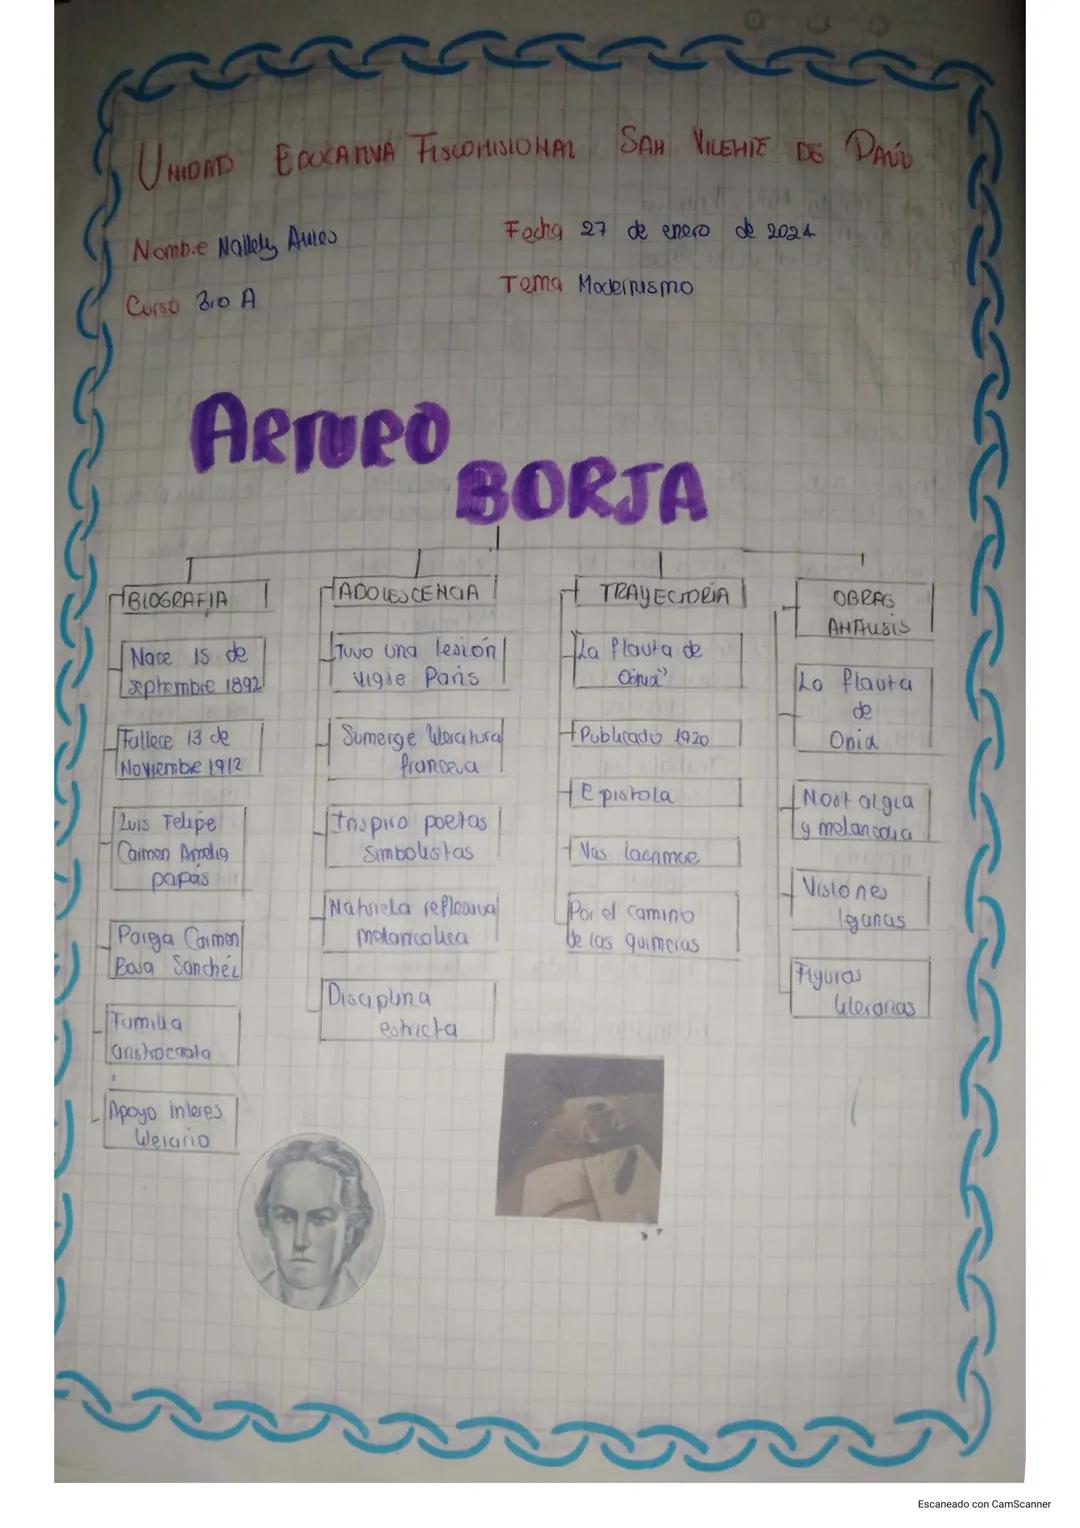 UNIDAD EDUCATIVA FISCOMISIONAL SAN VICENTE DE PAÚL
Nombre Nallely Aules
Fecha 27 de enero de 2024
Curso 3ro A
Tema Modernismo
ARTURO
BORJA
BIOGRAFIA
Nace 15 de
septiembre 1892
Fallece 13 de
Noviembre 1912
Luis Felipe
Carmen Amelia
papás
Pareja Carmen
Rosa Sanchéz
Familia
aristocrata
Apoyo interes
literario
ADOLESCENCIA
Tuvo una lesión
viaje Paris
Sumerge literatura
francesa
Inspiro poetas
simbolistas
Naturiela reflexiva
melancolica
Disciplina
estricta
TRAYECTORIA
"La flauta de
Ónix"
Publicado 1920
Epistola
Vas lacrimae
Por el camino
de las quimeras
OBRAS
ANALISIS
La flauta
de
Onix
Nostalgia
y melancolia
Visiones
lejanas
Figuras
literarias
Escaneado con CamScanner